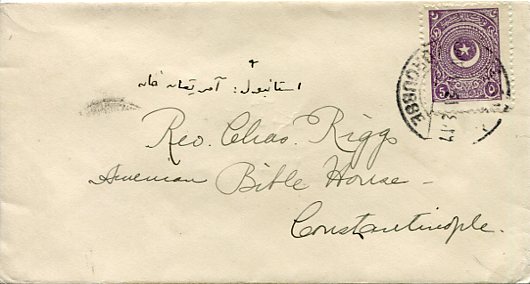 استانبول: آمریقان خانه
Rev. Chas. Riggs
American Bible House –
Constantinople.